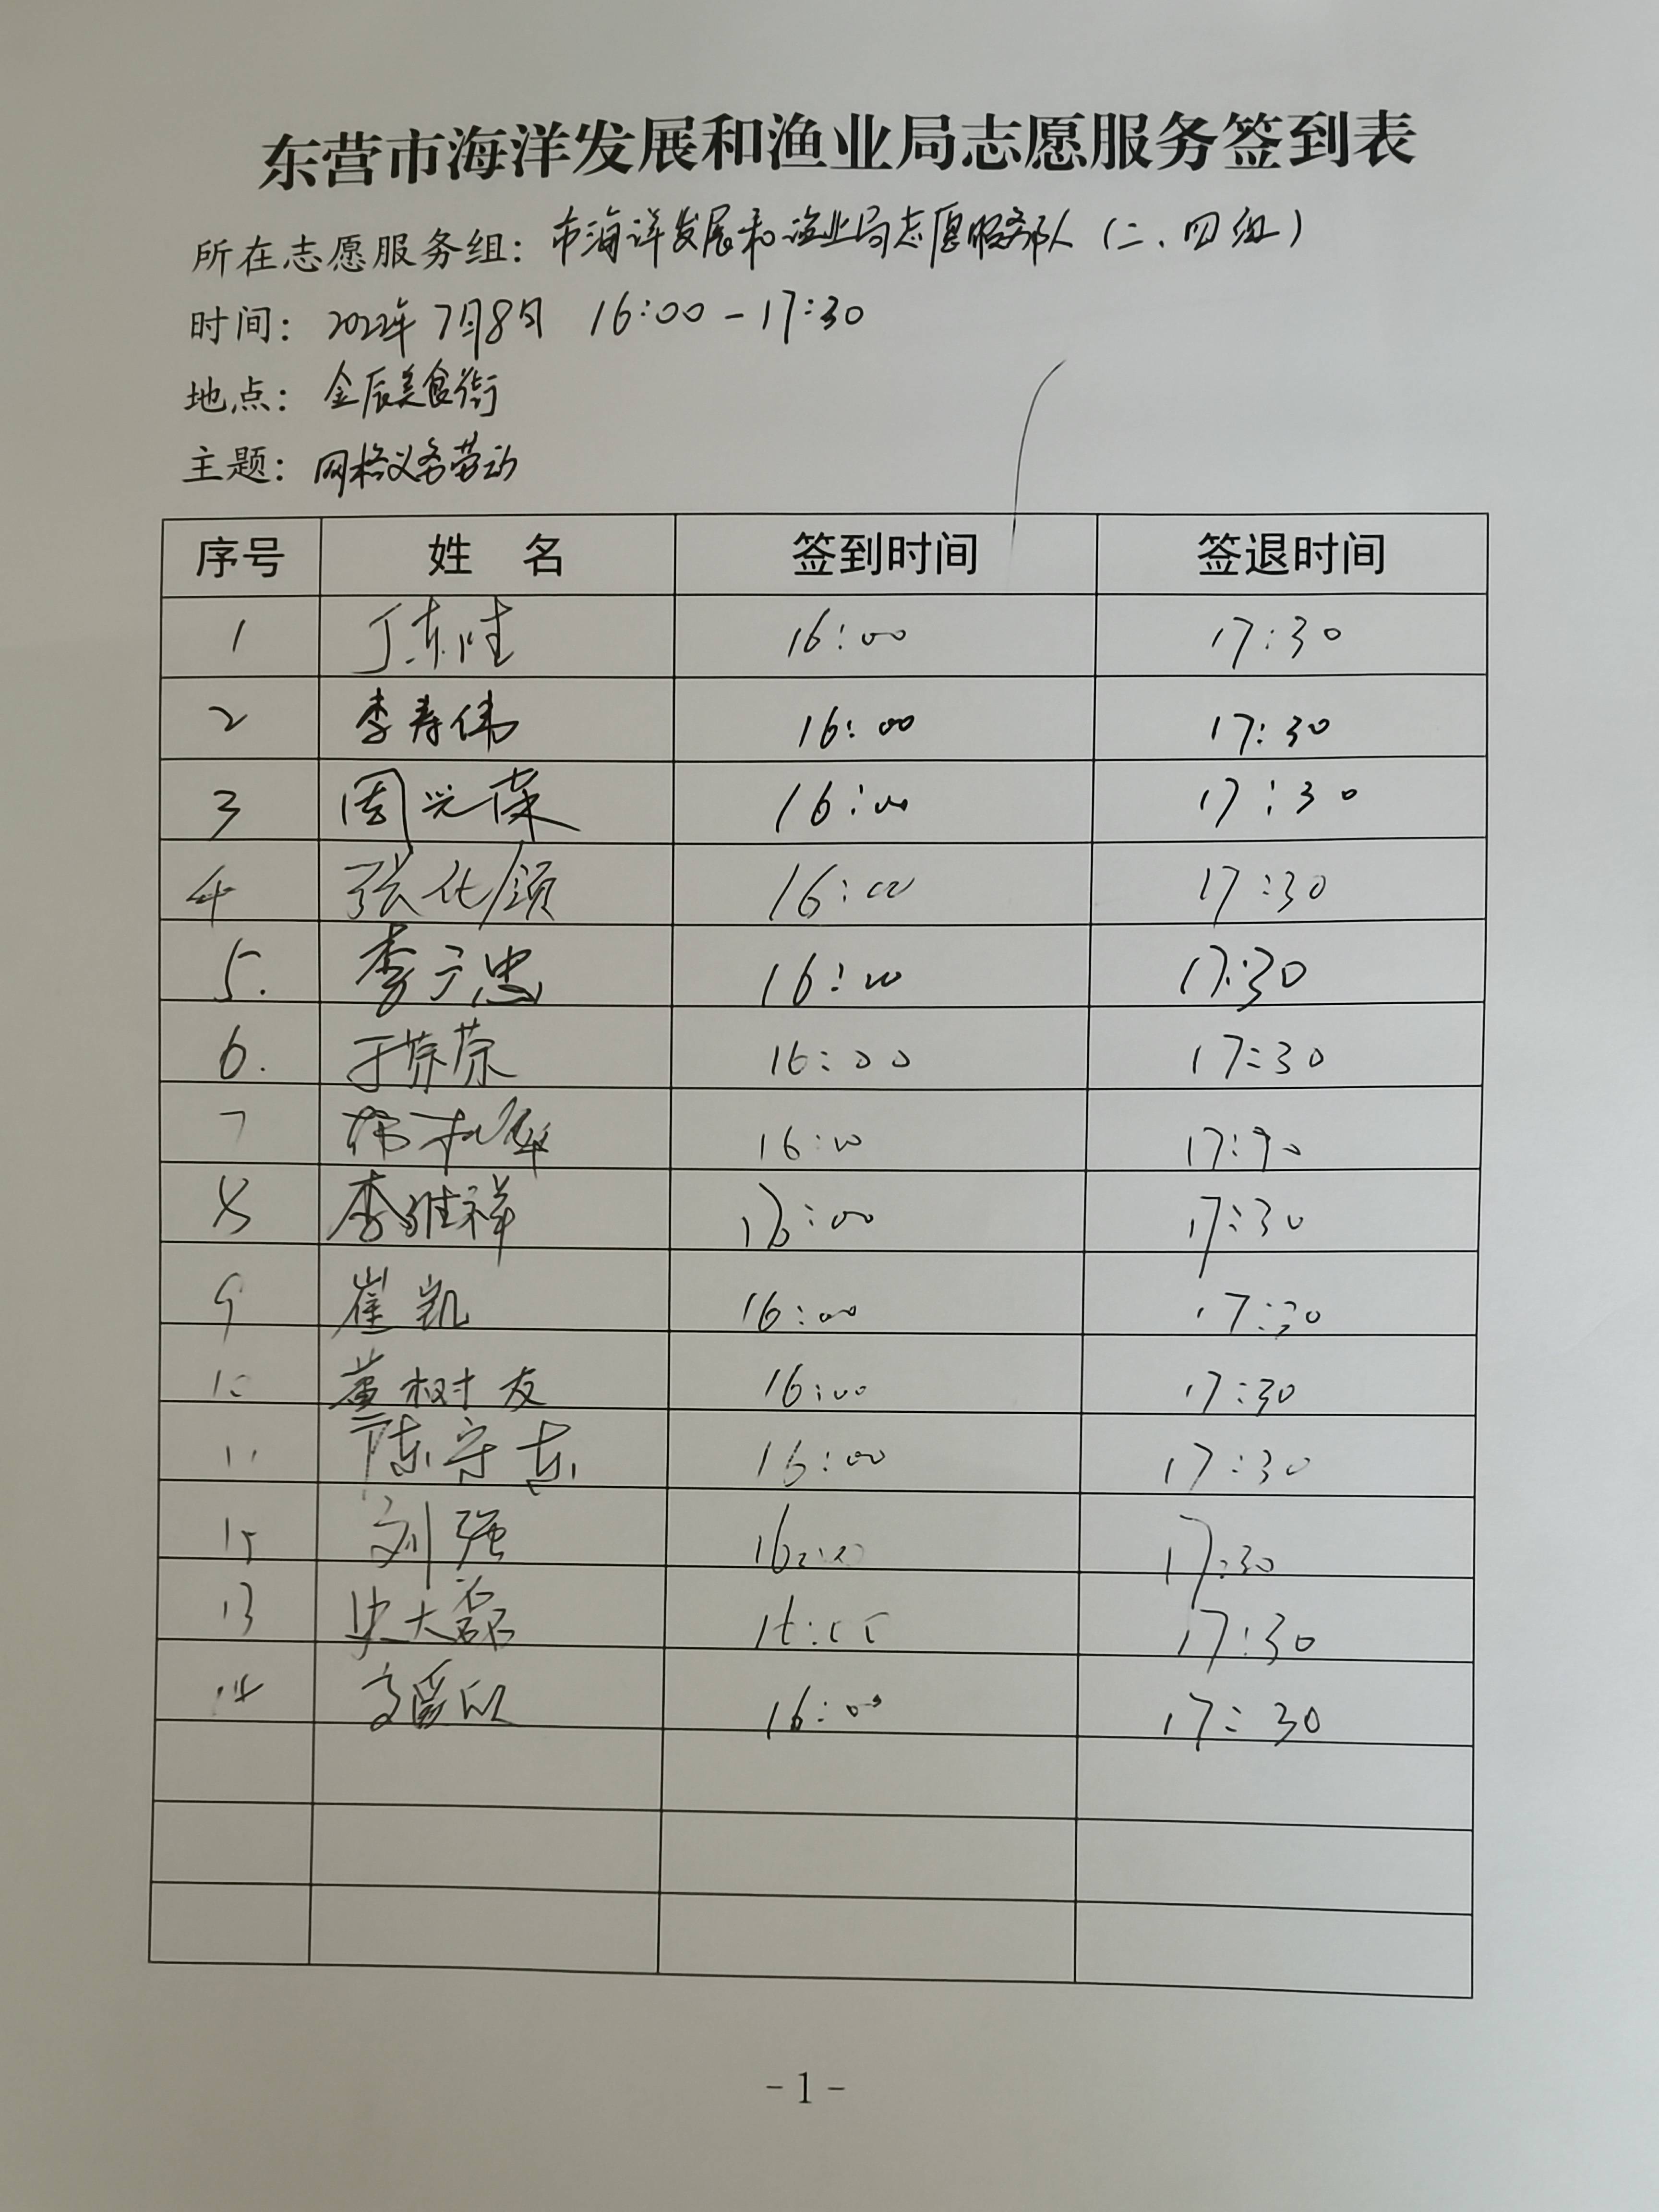 东营市海洋发展和渔业局志愿服务签到表
所在志愿服务组：市海洋发展和渔业局志愿服务队（二、四组）
时间：2022年7月8日 16:00-17:30
地点：金辰美食街
主题：网格义务劳动
序号 姓 名 签到时间 签退时间
1 丁东胜 16:00 17:30
2 李寿伟 16:00 17:30
3 周兴荣 16:00 17:30
4 张化颂 16:00 17:30
5. 李广忠 16:00 17:30
6. 于荣荣 16:00 17:30
7 16:00 17:30
8 李维祥 16:00 17:30
9 崔凯 16:00 17:30
10 董树友 16:00 17:30
11 陈守东 16:00 17:30
12 刘强 16:00 17:30
13 史大磊 16:00 17:30
14 16:00 17:30
- 1 -